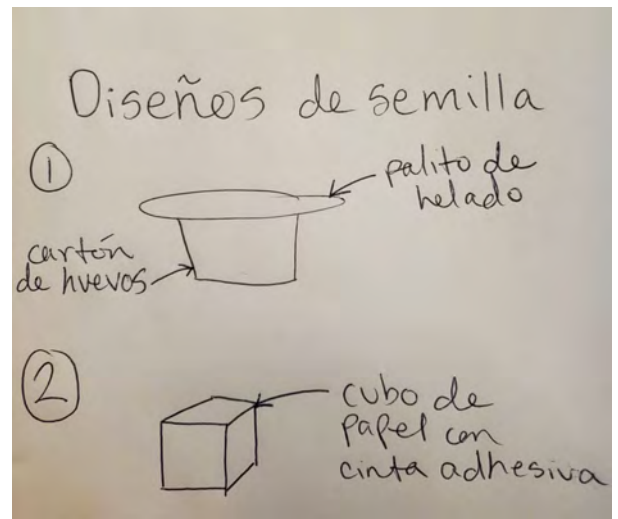 Diseños de semilla
1
palito de
helado
cartón
de huevos
2
cubo de
papel con
cinta adhesiva